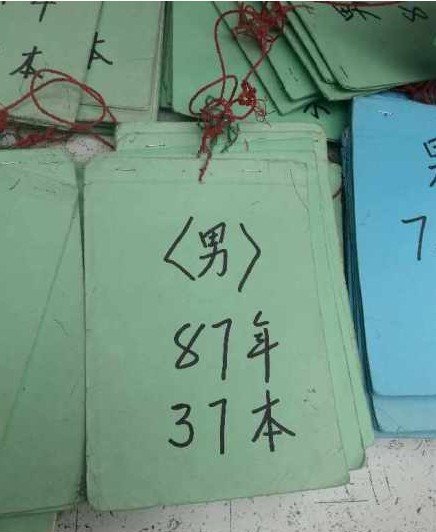 本
本
〈男〉
87年
37本
8
7